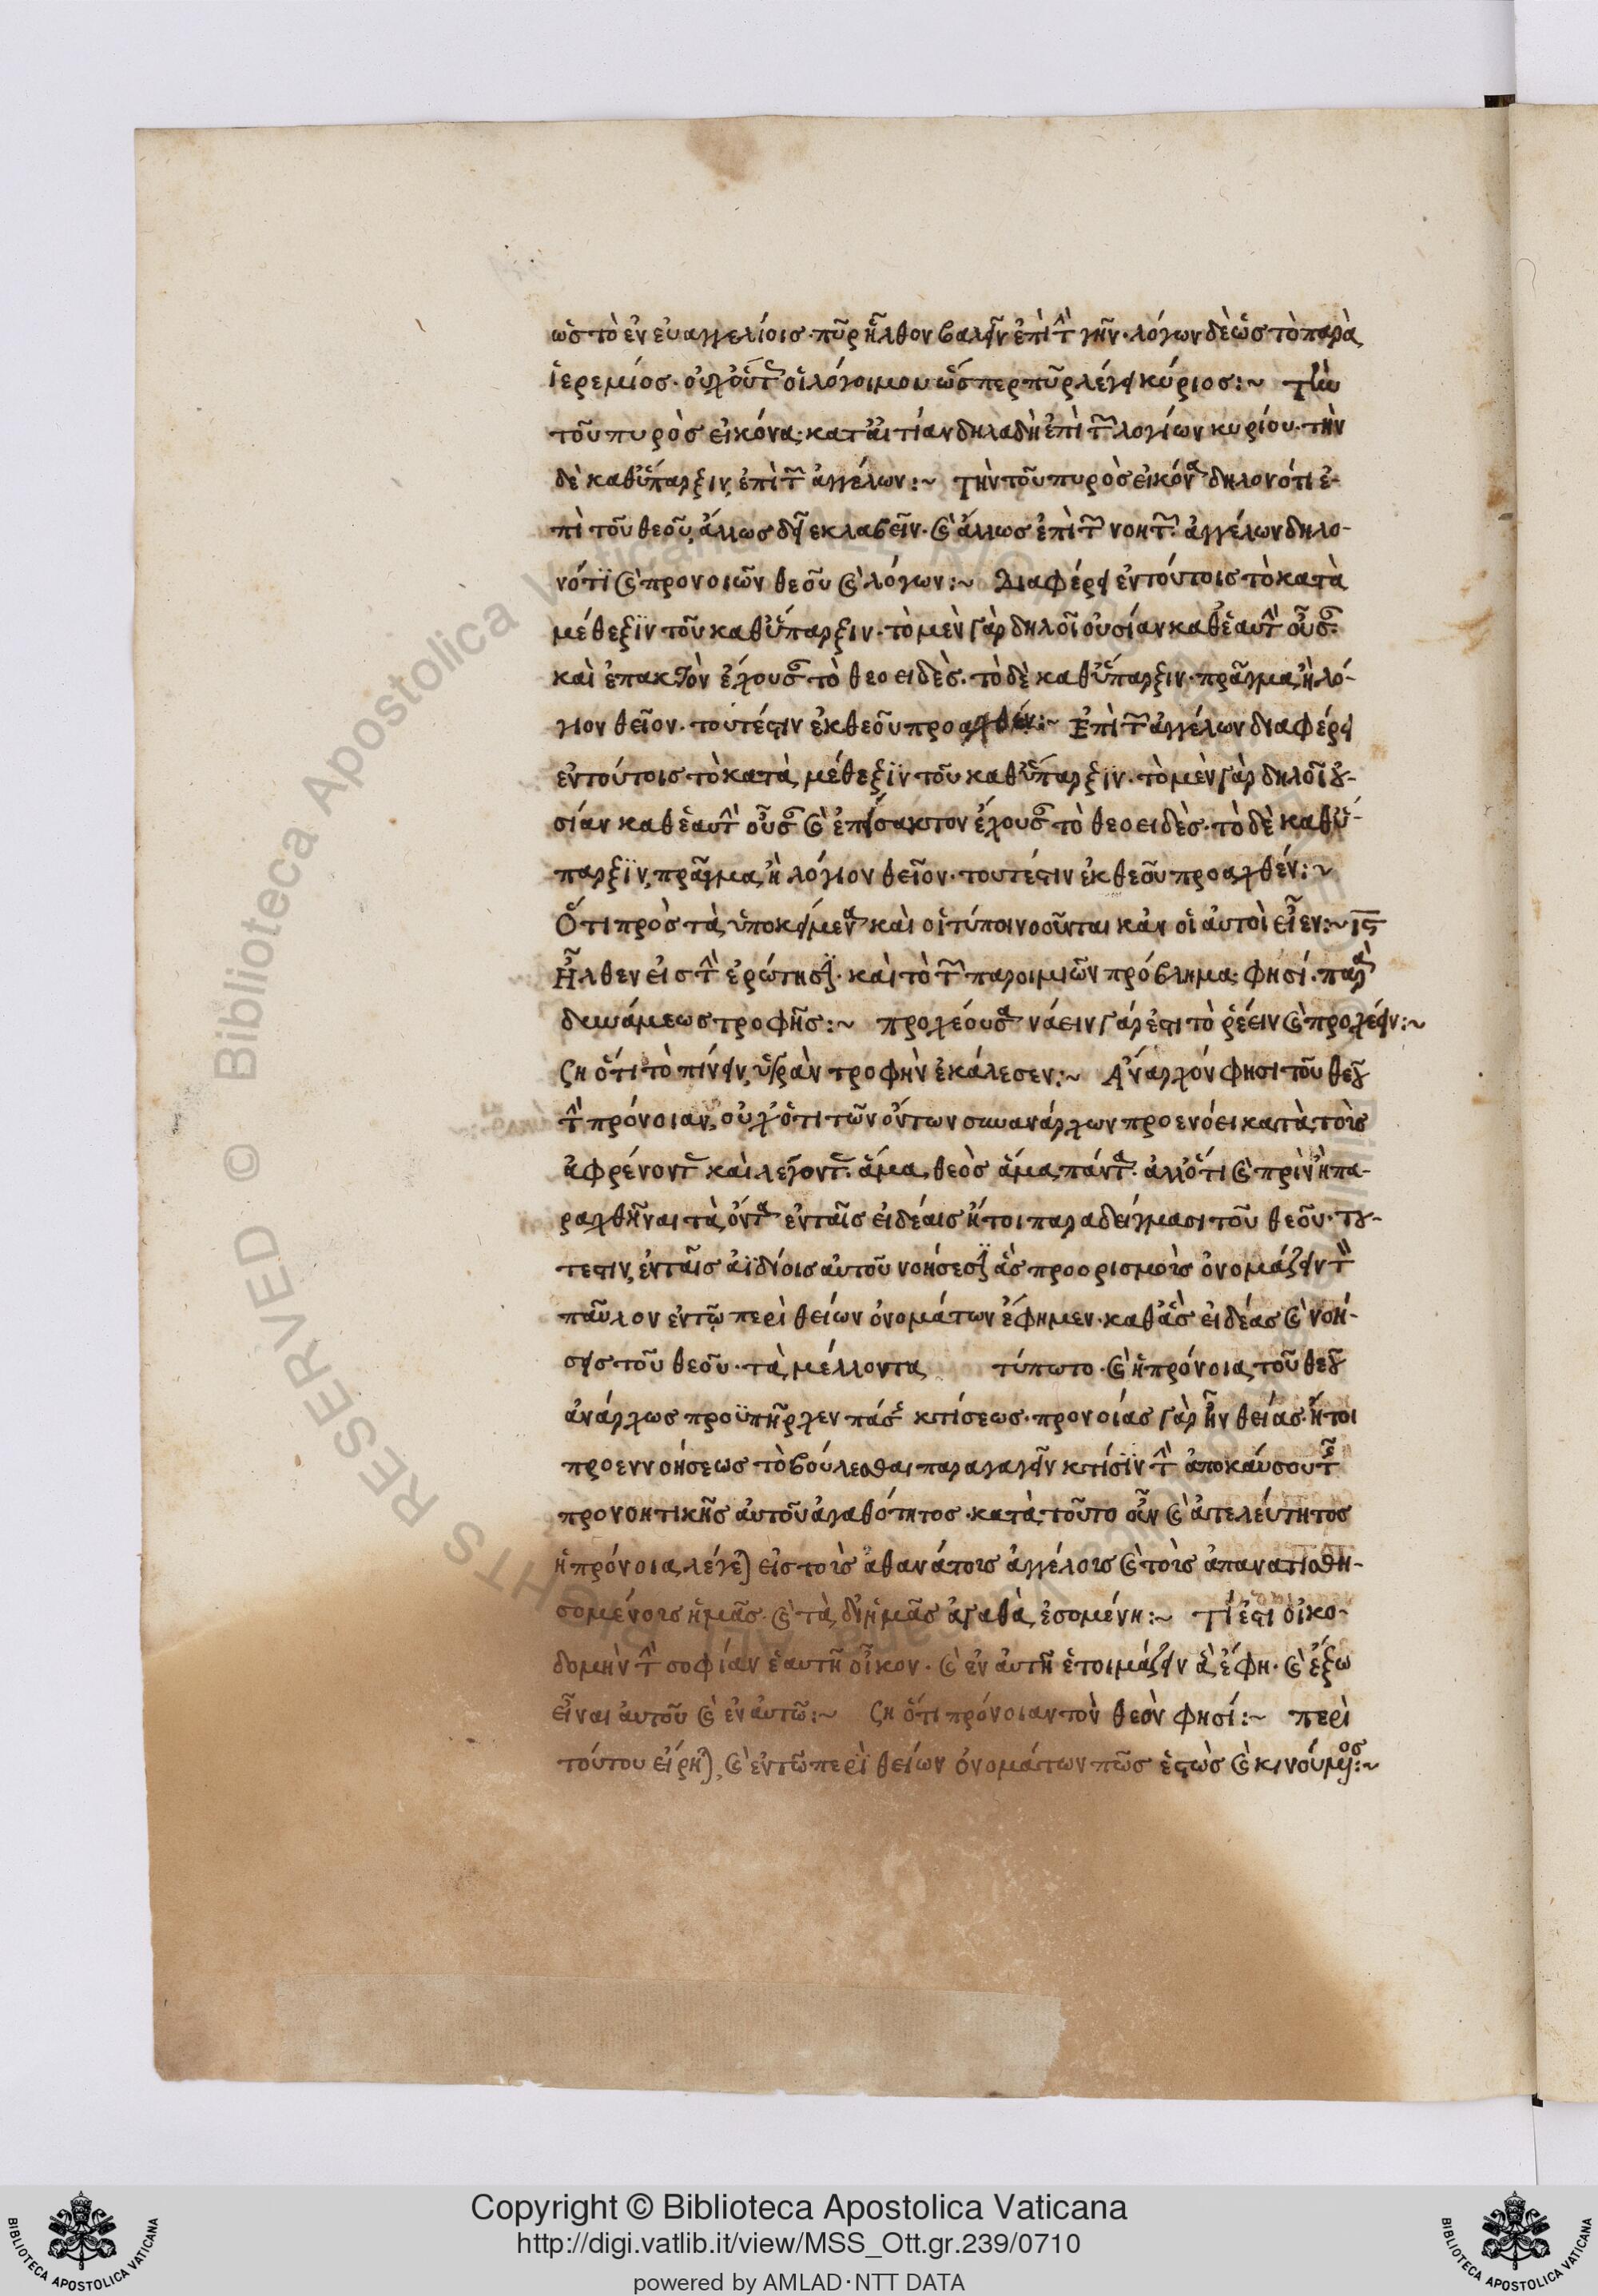 ὡς τὸ ἐν εὐαγγελίοις· πῦρ ἦλθον βαλεῖν ἐπὶ τὴν γῆν· λόγων δὲ ὡς τὸ παρὰ
ἱερεμίος· οὐχ οὕτως οἱ λόγοι μου ὥσπερ πῦρ λέγει κύριος:~ Τὴν
τοῦ πυρὸς εἰκόνα· κατ' αἰτίαν δηλαδὴ ἐπὶ τῶν λογίων κυρίου· τὴν
δὲ καθ' ὕπαρξιν, ἐπὶ τῶν ἀγγέλων:~ Τὴν τοῦ πυρὸς εἰκόνα δηλονότι ἐ-
πὶ τοῦ θεοῦ, ἄλλως δεῖ ἐκλαβεῖν· καὶ ἄλλως ἐπὶ τῶν νοητῶν· ἀγγέλων δηλο-
νότι καὶ προνοιῶν θεοῦ καὶ λόγων:~ Διαφέρει ἐν τούτοις τὸ κατὰ
μέθεξιν τοῦ καθ' ὕπαρξιν· τὸ μὲν γὰρ δηλοῖ οὐσίαν καθ' ἑαυτὴν οὖσαν·
καὶ ἐπακτὸν ἔχουσαν τὸ θεοειδὲς· τὸ δὲ καθ' ὕπαρξιν· πρᾶγμα, ἢ λό-
γιον θεῖον· τουτέστιν ἐκ θεοῦ προαχθέν:~ Ἐπὶ τῶν ἀγγέλων διαφέρει
ἐν τούτοις τὸ κατὰ μέθεξιν τοῦ καθ' ὕπαρξιν· τὸ μὲν γὰρ δηλοῖ οὐ-
σίαν καθ' ἑαυτὴν οὖσαν καὶ ἐπείσακτον ἔχουσαν τὸ θεοειδὲς· τὸ δὲ καθ' ὕ-
παρξιν, πρᾶγμα, ἢ λόγιον θεῖον· τουτέστιν ἐκ θεοῦ προαχθέν:~
Ὅτι πρὸς τὰ ὑποκείμενα καὶ οἱ τύποι νοοῦνται κἂν οἱ αὐτοὶ εἶεν:~ ις
Ἦλθεν εἰς τὴν ἐρώτησιν· καὶ τὸ τῶν παροιμιῶν πρόβλημα· φησί· παρὰ
δυνάμεως τροφῆς:~ προχέουσα νάειν γάρ ἐστι τὸ ῥέειν καὶ προχέειν:~
ση ὅτι τὸ πίνειν, ὑγρὰν τροφὴν ἐκάλεσεν:~ Ἄναρχόν φησι τοῦ θεοῦ
τὴν πρόνοιαν, οὐχ ὅτι τῶν ὄντων συνανάρχων προενόει κατὰ τοὺς
ἀφρένοντας καὶ λέγοντας· ἅμα θεὸς ἅμα πάντα· ἀλλ' ὅτι καὶ πρὶν ἢ πα-
ραχθῆναι τὰ ὄντα ἐν ταῖς εἰδέαις ἤτοι παραδείγμασι τοῦ θεοῦ· του-
τέστιν, ἐν ταῖς ἀϊδίοις αὐτοῦ νοήσεσιν ἃς προορισμοὺς ὀνομάζειν τὸν
παῦλον ἐν τῷ περὶ θείων ὀνομάτων ἔφημεν· καθ' ἃς εἰδέας καὶ νοή-
σεις τοῦ θεοῦ· τὰ μέλλοντα τύπωτο· καὶ ἡ πρόνοια τοῦ θεοῦ
ἀνάρχως προϋπῆρχεν πάσης κτίσεως· προνοίας γὰρ ἦν θείας· ἤτοι
προεννοήσεως τὸ βούλεσθαι παραγαγεῖν κτίσιν τὴν ἀπολαύσουσαν τῆς
προνοητικῆς αὐτοῦ ἀγαθότητος· κατὰ τοῦτο οὖν καὶ ἀτελεύτητος
ἡ πρόνοια λέγεται εἰς τοὺς ἀθανάτους ἀγγέλους καὶ τοὺς ἀπαναστησθη-
σομένους ἡμᾶς· καὶ τὰ δι' ἡμᾶς ἀγαθὰ ἐσομένη:~ Τί ἐστι οἰκο-
δομὴν τὴν σοφίαν ἑαυτῆ οἶκον· καὶ ἐν αὐτῆ ἑτοιμάζειν ἃ ἔφη· καὶ ἔξω
εἶναι αὐτοῦ καὶ ἐν αὐτῶ:~ ση ὅτι πρόνοιαν τὸν θεόν φησί:~ περὶ
τούτου εἴρηται, καὶ ἐν τῶ περὶ θείων ὀνομάτων πῶς ἑστὼς καὶ κινούμενος:~
Copyright © Biblioteca Apostolica Vaticana
http://digi.vatlib.it/view/MSS_Ott.gr.239/0710
powered by AMLAD·NTT DATA